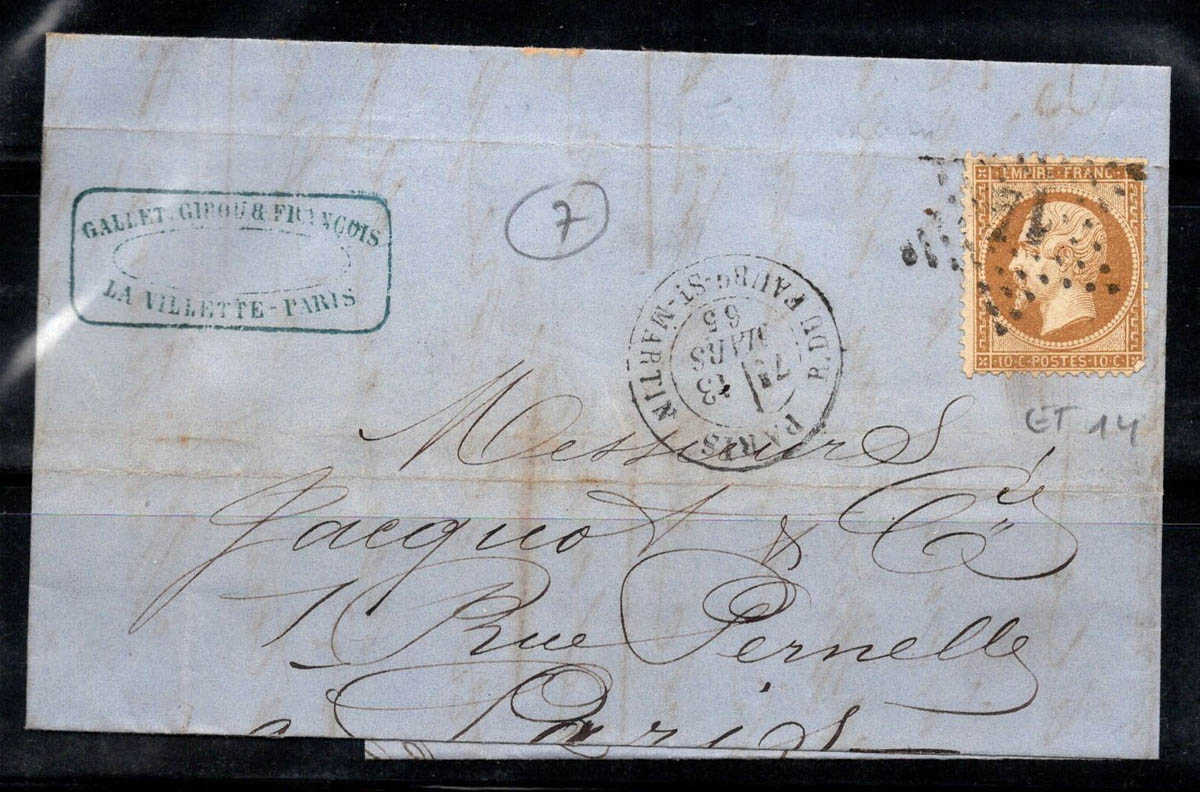 GALLET, GIROU & FRANÇOIS
LA VILLETTE - PARIS
7
PARIS
R. DU FAUBG-ST-MARTIN
7E
13
MARS
65
EMPIRE FRANC
14
10 C POSTES 10 C
ET 14
Messieurs
Jacquot & Cie
1 Rue Pernelle
à Paris